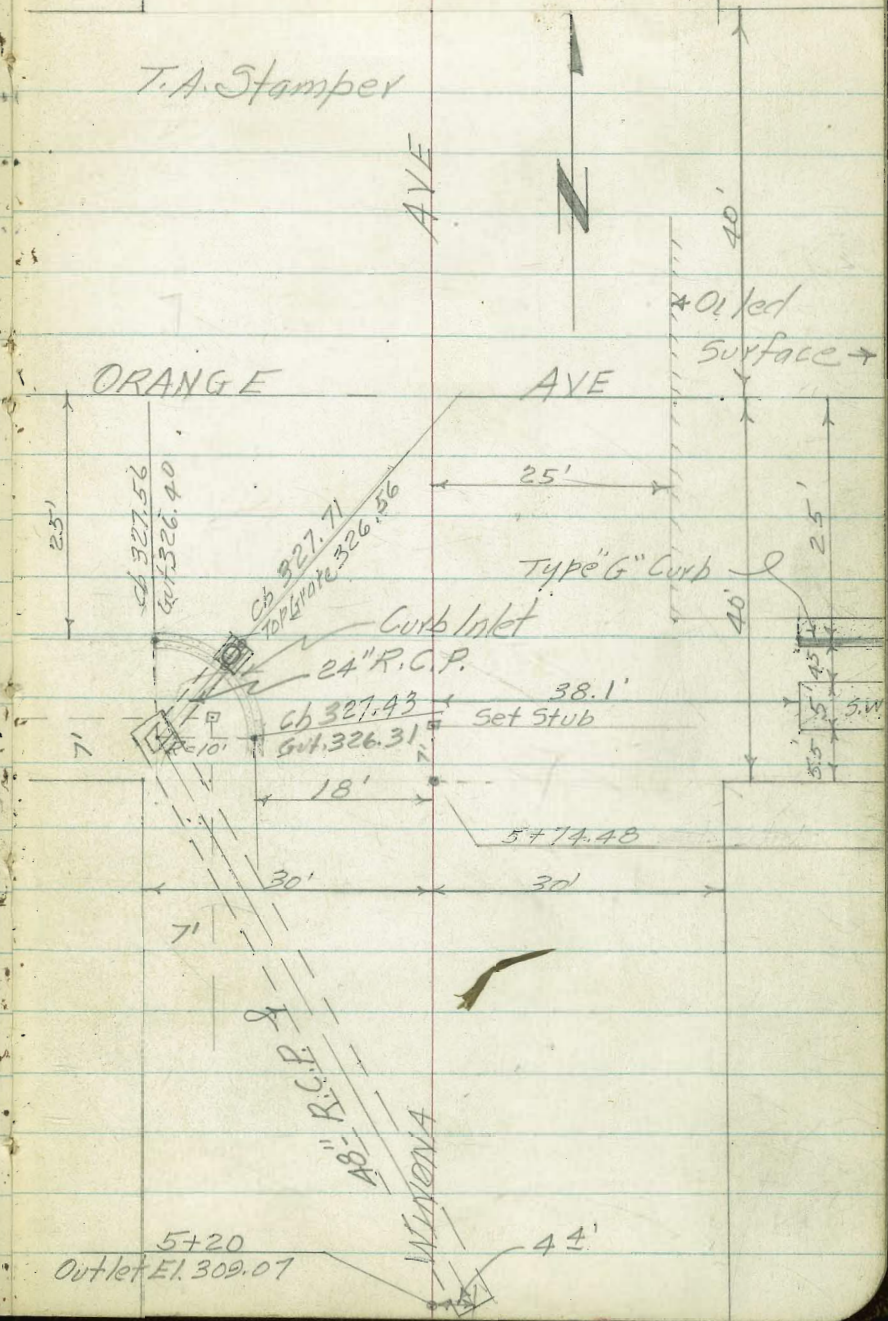 T.A. Stamper
AVE
N
40'
Oiled
Surface
ORANGE AVE
25'
Cb 327.56
Gut 326.40
Cb 327.71
Top Grate 326.56
25'
25'
Type "G" Curb
40'
Curb Inlet
24" R.C.P.
38.1'
Set Stub
Cb 327.43
Gut. 326.31
R=10'
7'
7'
4.5'
5'
S.W
5.5'
18'
5+74.48
30' 30'
7'
48" R.C.P.
WINONA
5+20
Outlet El. 309.07
4±'